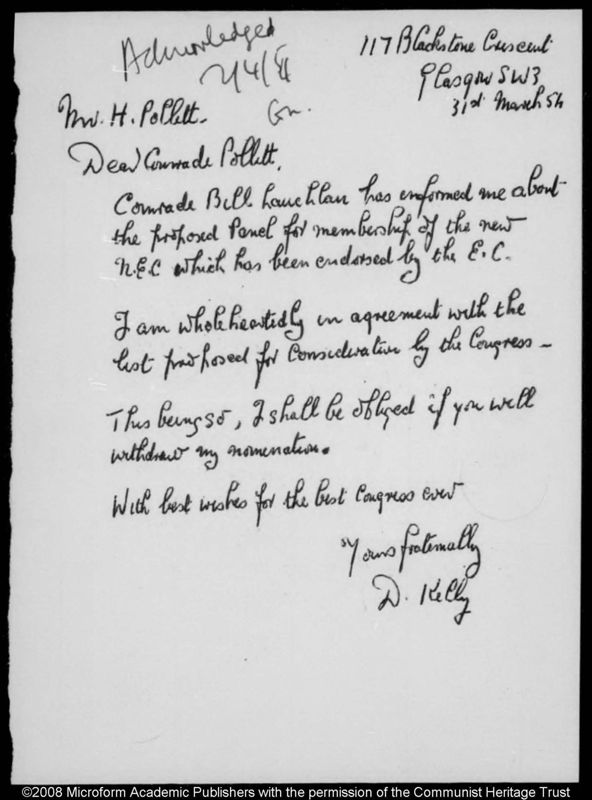 Acknowledged
2/4/54
117 Blackstone Crescent
Glasgow SW3
31st March 54
Mr. H. Pollitt.
Dear Comrade Pollitt,
Comrade Bill Lauchlan has enformed me about
the proposed Panel for membership of the new
N.E.C which has been endorsed by the E.C.
I am wholeheartedly in agreement with the
list proposed for Consideration by the Congress -
This being so, I shall be obliged if you will
withdraw my nomination.
With best wishes for the best Congress ever
Yours fraternally
D. Kelly
©2008 Microform Academic Publishers with the permission of the Communist Heritage Trust